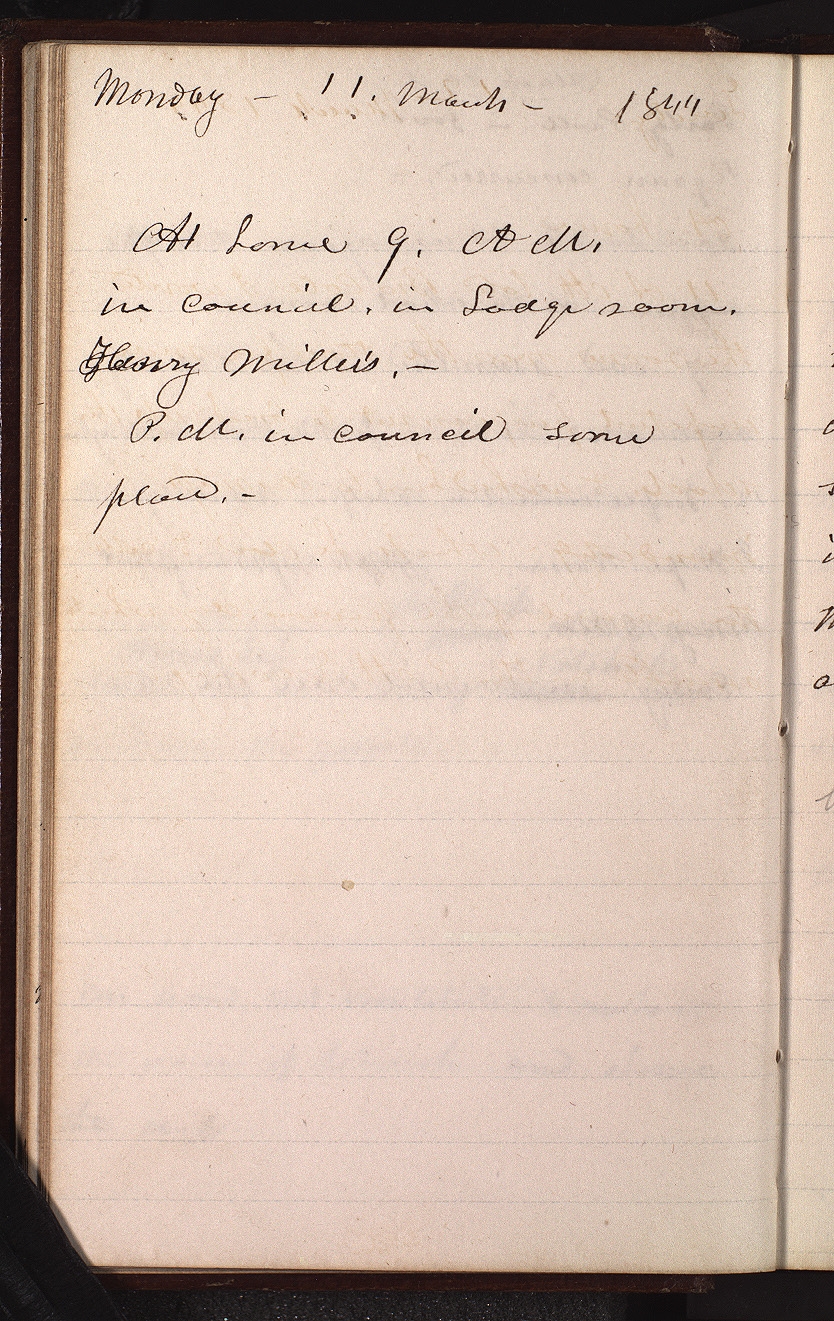 Monday - 11. March - 1844
At home 9. A M.
in council. in Lodge room.
Henry Millers. -
P. M. in council same
place. -